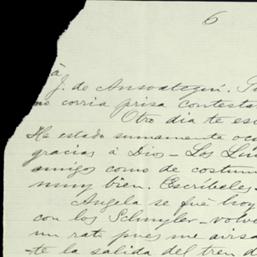 6
à
J. de Ansoategui.
no corria prisa contesta
Otro dia te es
He estado sumamente ocu
gracias à Dios - Los
amigos como de costum
muy bien. Escribeles.
Angela se fué hoy
con los Schuyler - volve
un rato pues me
te la salida del tren d